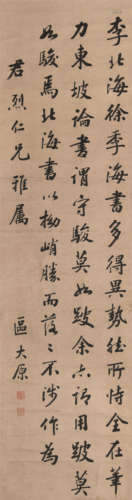 李北海徐季海書多得異勢然所恃全在筆
力東坡論書謂守駿莫如跛余亦謂用跛莫
如駿焉北海書以拗峭勝而落落不涉作為
君烈仁兄雅屬
區大原